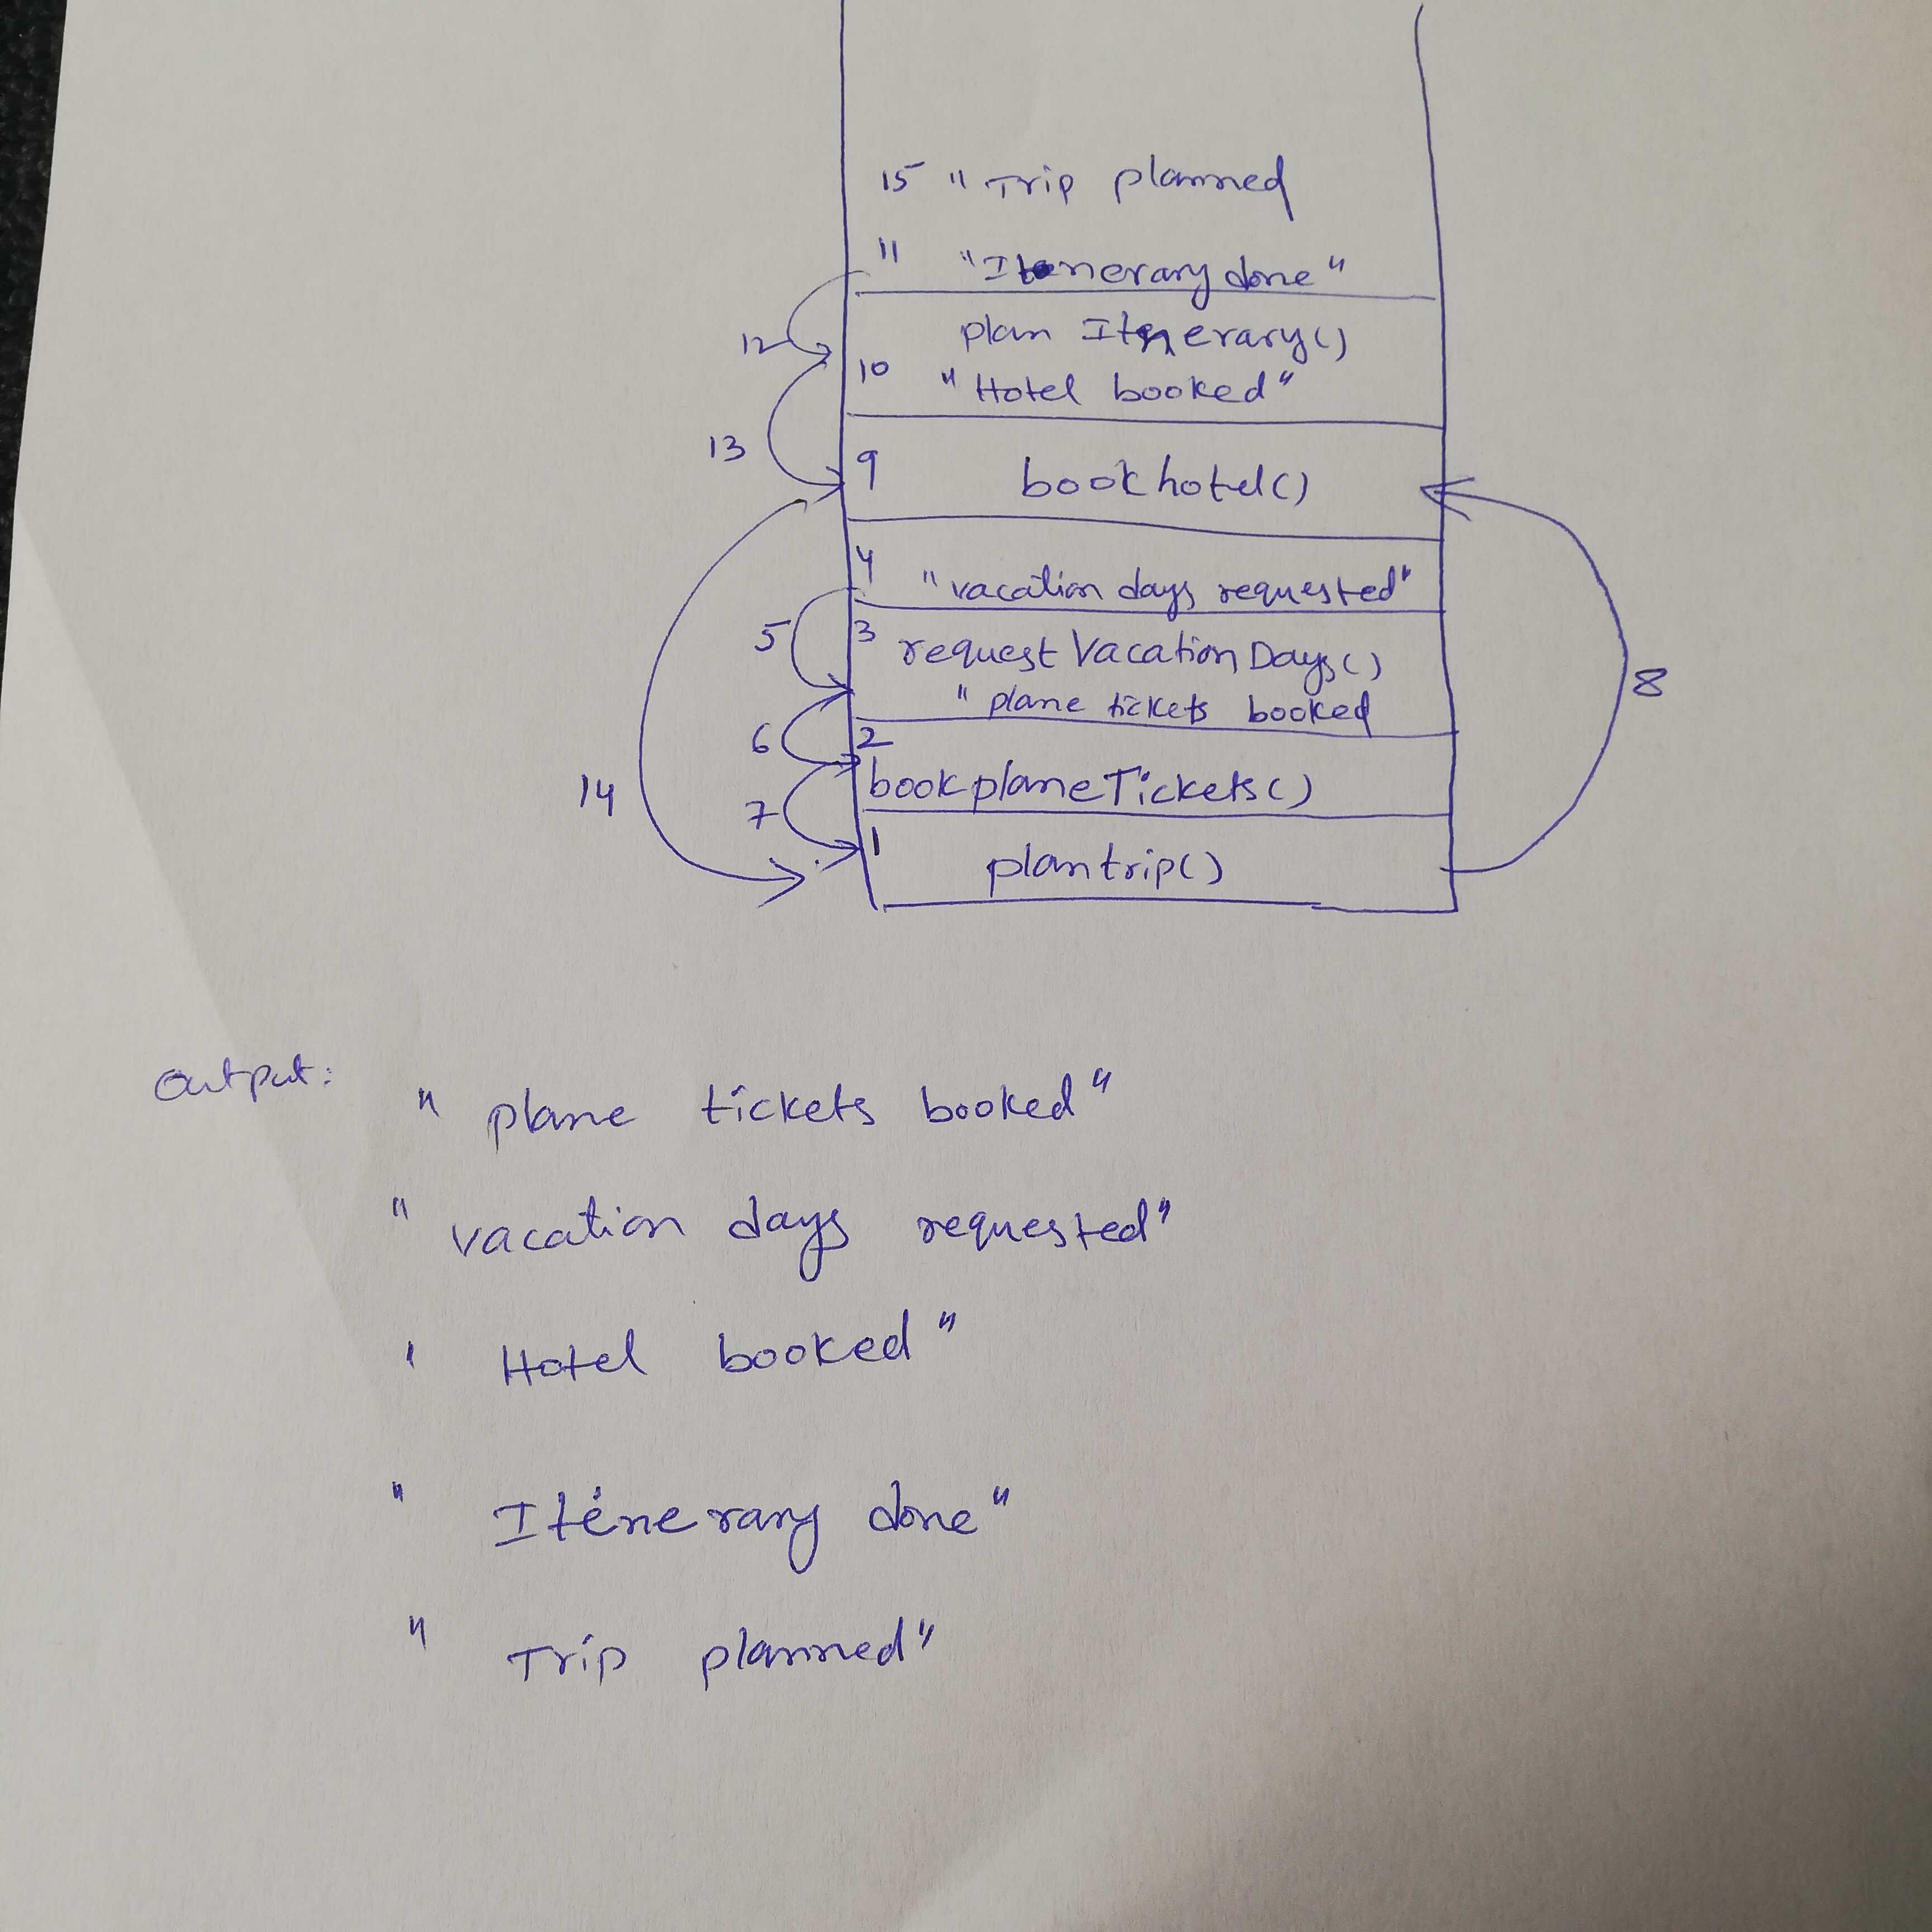 15 " Trip planned
11 "Itenerary done"
12
plan Itenerary()
10 "Hotel booked"
13
9 bookhotel()
4 "vacation days requested"
5
3 requestVacationDays()
8
" plane tickets booked
6
2
bookplaneTickets()
14
7
1 plantrip()
output:
" plane tickets booked"
"vacation days requested"
' Hotel booked"
" Itenerary done"
" Trip planned"